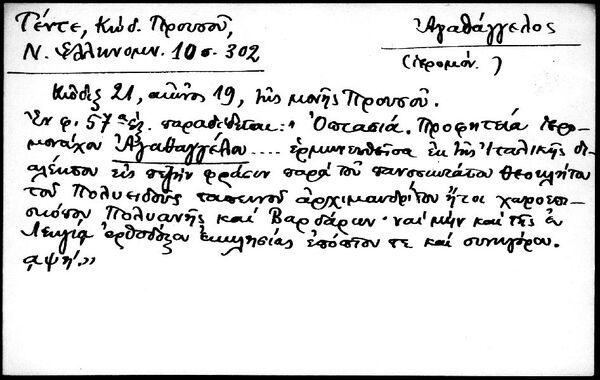 Τέντε, Κώδ. Προυσοῦ,
Ν. Ἑλληνομν. 10 σ. 302
Ἀγαθάγγελος
(ἱερομόν.)
Κῶδιξ 21, αἰῶνος 19, τῆς μονῆς Προυσοῦ.
Ἐν φ. 57α ἑξ. παραδίδεται: "Ὀπτασία. Προφητεία ἱερο-
μονάχου Ἀγαθαγγέλου .... ἑρμηνευθεῖσα ἐκ τῆς Ἰταλικῆς δι-
αλέκτου εἰς πεζὴν φράσιν παρὰ τοῦ πανοσιωτάτου Θεοκλήτου
τοῦ Πολυειδοῦς ταπεινοῦ ἀρχιμανδρίτου ἤτοι χωροεπι-
σκόπου Πολυανῆς καὶ Βαρδάρων· ναὶ μὴν καὶ τῆς ἐν
Λειψίᾳ ὀρθοδόξου ἐκκλησίας ἐπόπτου τε καὶ συνηγόρου.
αψη'."